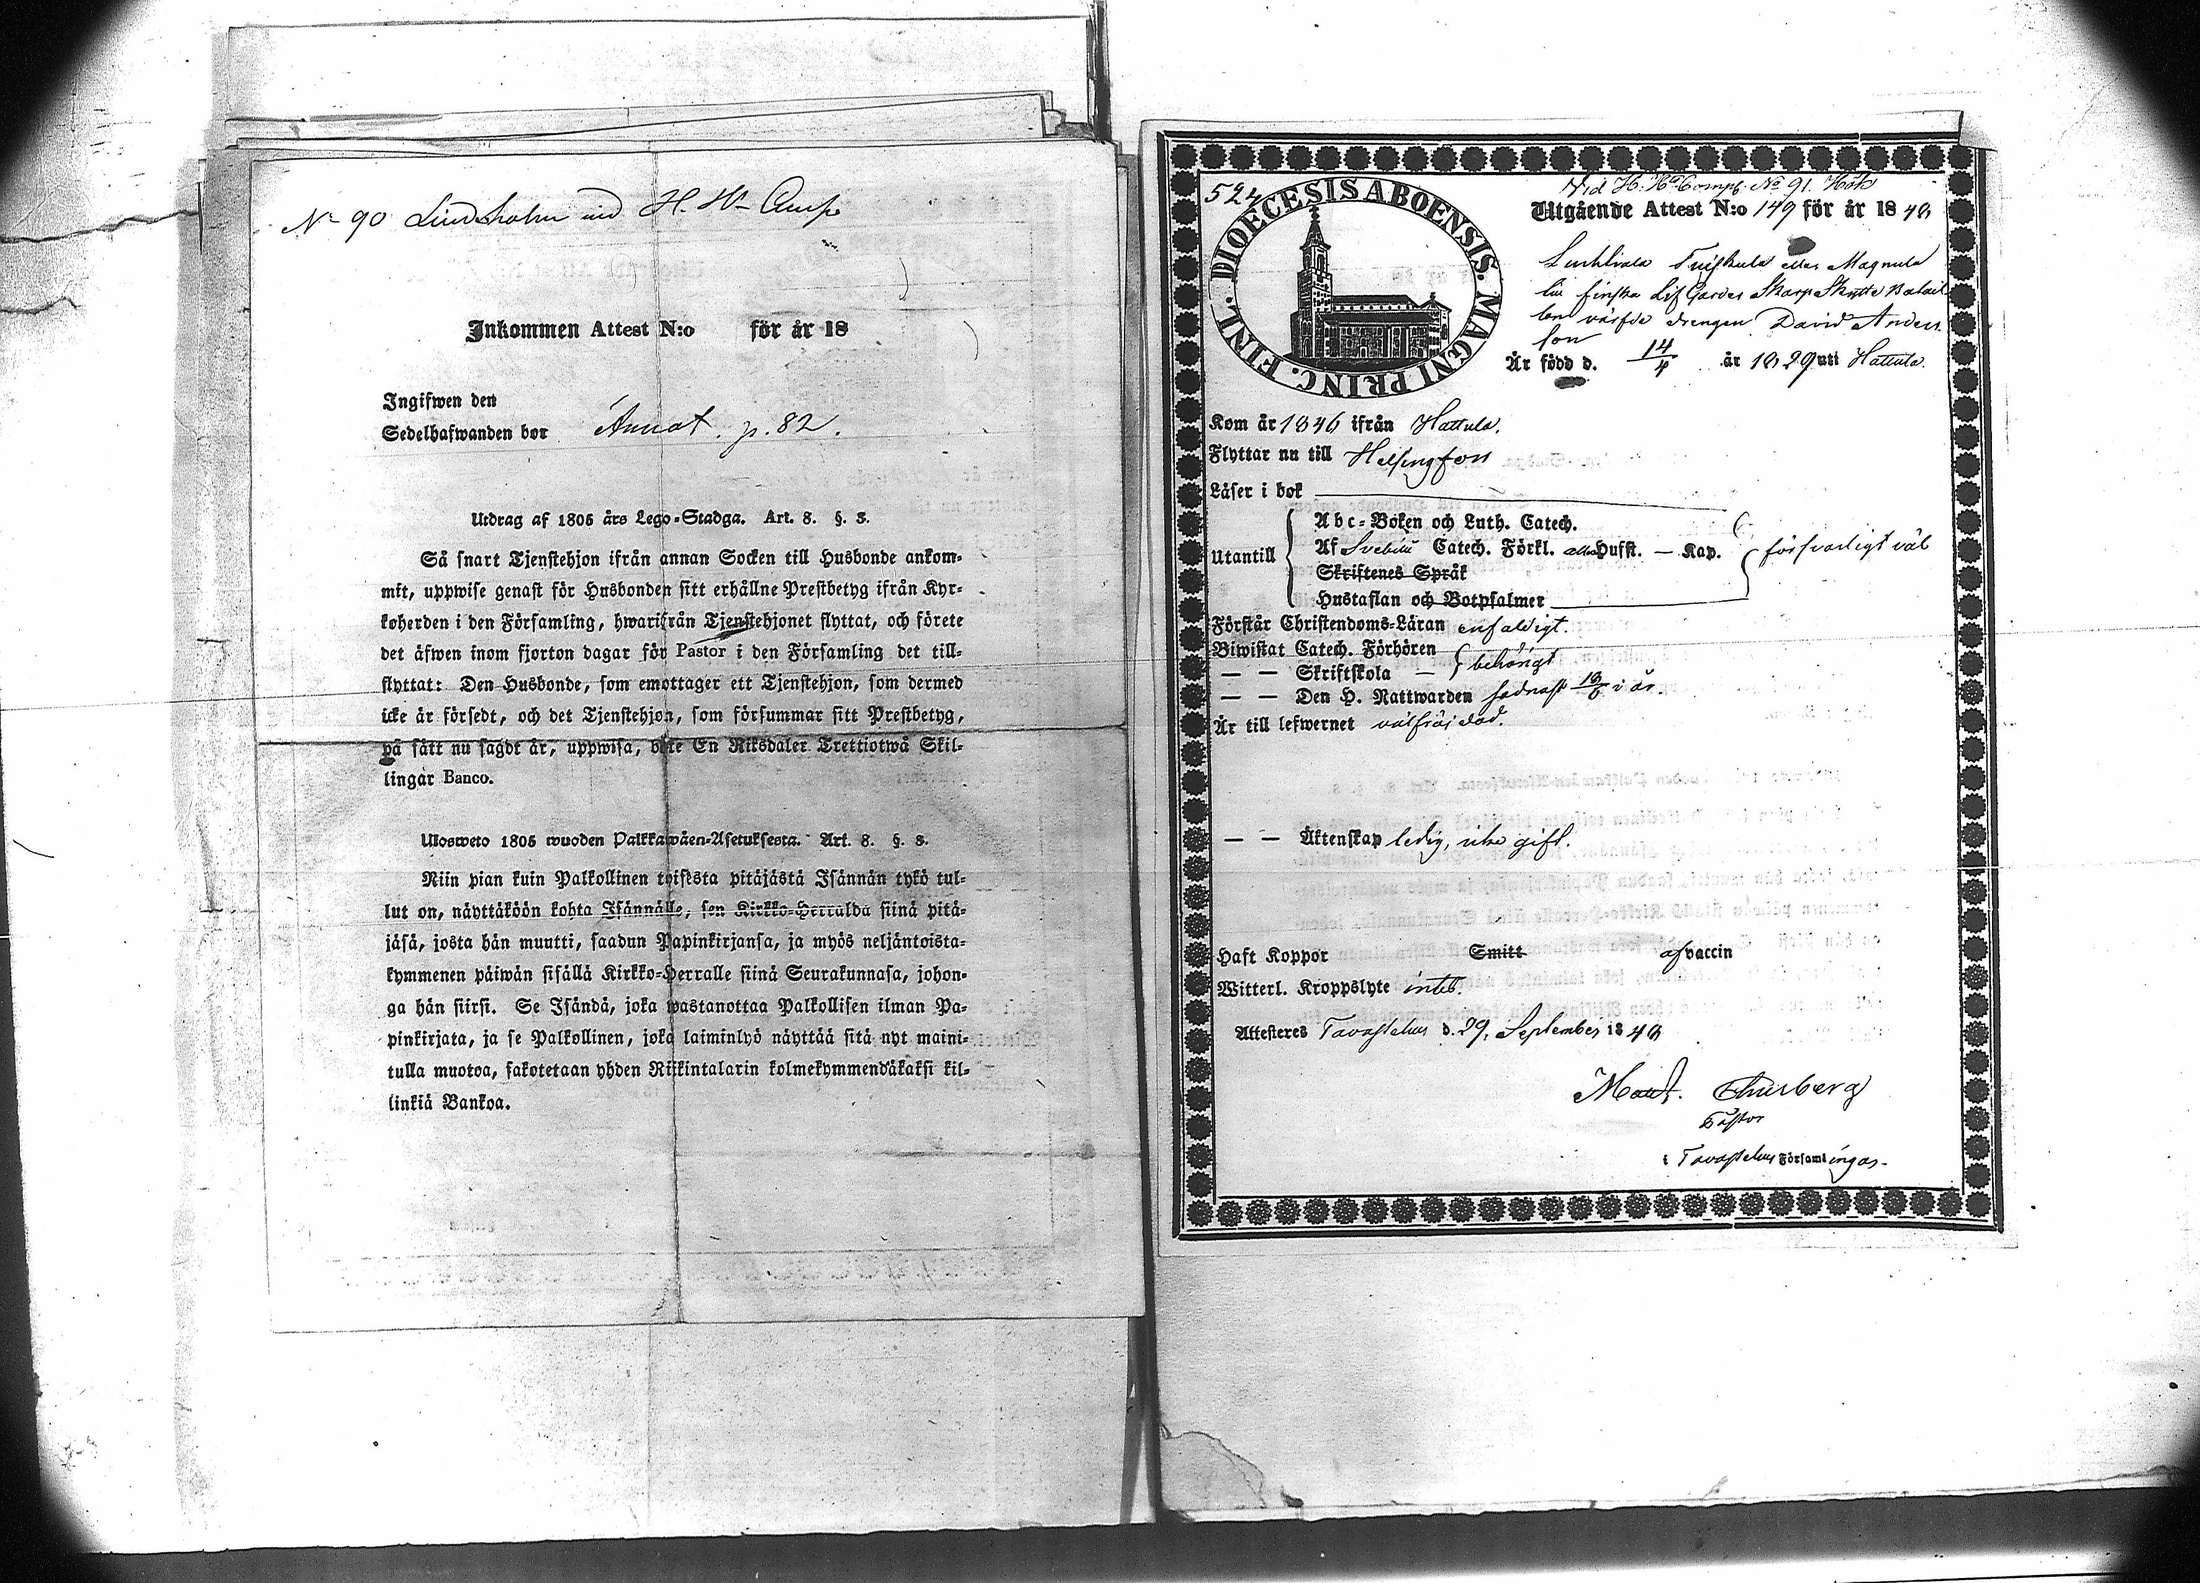 No 90 Lindholm vid H. H. Comp.
Inkommen Attest N:o för år 18
Ingifwen den
Sedelhafwanden bor Annat. p. 82.
Utdrag af 1805 års Lego-Stadga. Art. 8. §. 3.
Så snart Tjenstehjon ifrån annan Socken till Husbonde ankom-
mit, uppwise genast för Husbonden sitt erhållne Prestbetyg ifrån Kyr-
koherden i den Församling, hwarifrån Tjenstehjonet flyttat, och förete
det äfwen inom fjorton dagar för Pastor i den Församling det till-
flyttat: Den Husbonde, som emottager ett Tjenstehjon, som dermed
icke är försedt, och det Tjenstehjon, som försummar sitt Prestbetyg,
på sätt nu sagdt är, uppwisa, böte En Riksdaler Trettiotwå Skil-
lingar Banco.
Ulosweto 1805 wuoden Palkkawäen-Asetuksesta. Art. 8. §. 3.
Niin pian kuin Palkollinen toisesta pitäjästä Isännän tykö tul-
lut on, näyttäköön kohta Isännälle, sen Kirkko-Herralda siinä pitä-
jäsä, josta hän muutti, saadun Papinkirjansa, ja myös neljäntoista-
kymmenen päiwän sisällä Kirkko-Herralle siinä Seurakunnasa, johon-
ga hän siirsi. Se Isändä, joka wastanottaa Palkollisen ilman Pa-
pinkirjata, ja se Palkollinen, joka laiminlyö näyttää sitä nyt maini-
tulla muotoa, sakotetaan yhden Riikintalarin kolmekymmendäkaksi kil-
linkiä Bankoa.
524
DIOECESIS ABOENSIS. MAGNI PRINC. FINL.
Vid H. H. Comp. No 91. Hök
Utgående Attest N:o 149 för år 1848
eller Magnula
Finska Lif Gardes Skarp Skytte Batail
lon värfde drengen David Anders
son
Är född d. 14/4 år 1829 uti Hattula.
Kom år 1846 ifrån Hattula.
Flyttar nu till Helsingfors
Läser i bok
Utantill
Abc-Boken och Luth. Catech.
Af Svebilii Catech. Förkl. Hufst. — Kap. försvarligt väl
Skriftenes Språk
Hustaflan och Botpsalmer
Förstår Christendoms-Läran enfaldigt.
Biwistat Catech. Förhören
— — Skriftskola — behörigt
— — Den H. Nattwarden sednast i år.
Är till lefwernet välfräjdad.
— — Äktenskap ledig, icke gift.
Haft Koppor Smitt af vaccin
Witterl. Kroppslyte intet.
Attesteres Tavastehus d. 29. September 1848
Maur. Thurberg
Pastor
i Tavastehus Församlingar.